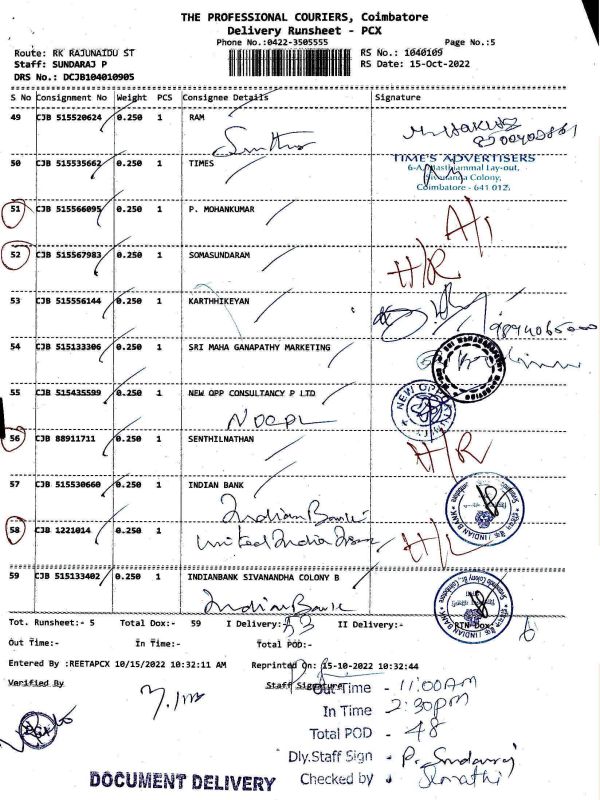 THE PROFESSIONAL COURIERS, Coimbatore
Delivery Runsheet - PCX
Phone No.:0422-3505555
Page No.:5
Route: RK RAJUNAIDU ST
RS No.: 1040109
Staff: SUNDARAJ P
RS Date: 15-Oct-2022
DRS No.: DCJB104010905
S No Consignment No Weight PCS Consignee Details Signature
49 CJB 515520624 0.250 1 RAM
50 CJB 515535662 0.250 1 TIMES
TIME'S ADVERTISERS
Lay-out,
Sivananda Colony,
Coimbatore - 641 012.
51 CJB 515566095 0.250 1 P. MOHANKUMAR
52 CJB 515567983 0.250 1 SOMASUNDARAM
H/R
53 CJB 515556144 0.250 1 KARTHHIKEYAN
54 CJB 515133306 0.250 1 SRI MAHA GANAPATHY MARKETING
55 CJB 515435599 0.250 1 NEW OPP CONSULTANCY P LTD
NEW OPP
NOCPL
56 CJB 88911711 0.250 1 SENTHILNATHAN
H/R
57 CJB 515530660 0.250 1 INDIAN BANK
Indian Bank
INDIAN BANK
58 CJB 1221014 0.250 1
United India
59 CJB 515133402 0.250 1 INDIANBANK SIVANANDHA COLONY B
Indian Bank
INDIAN BANK
Tot. Runsheet:- 5 Total Dox:- 59 I Delivery:- 53 II Delivery:- RTN Dox:- 6
Out Time:- In Time:- Total POD:-
Entered By :REETAPCX 10/15/2022 10:32:11 AM Reprinted On: 15-10-2022 10:32:44
Verified By Staff Signature
Out Time - 11:00AM
In Time - 2:30PM
Total POD - 48
PCX
Dly.Staff Sign - P. Sundaraj
Checked by
DOCUMENT DELIVERY